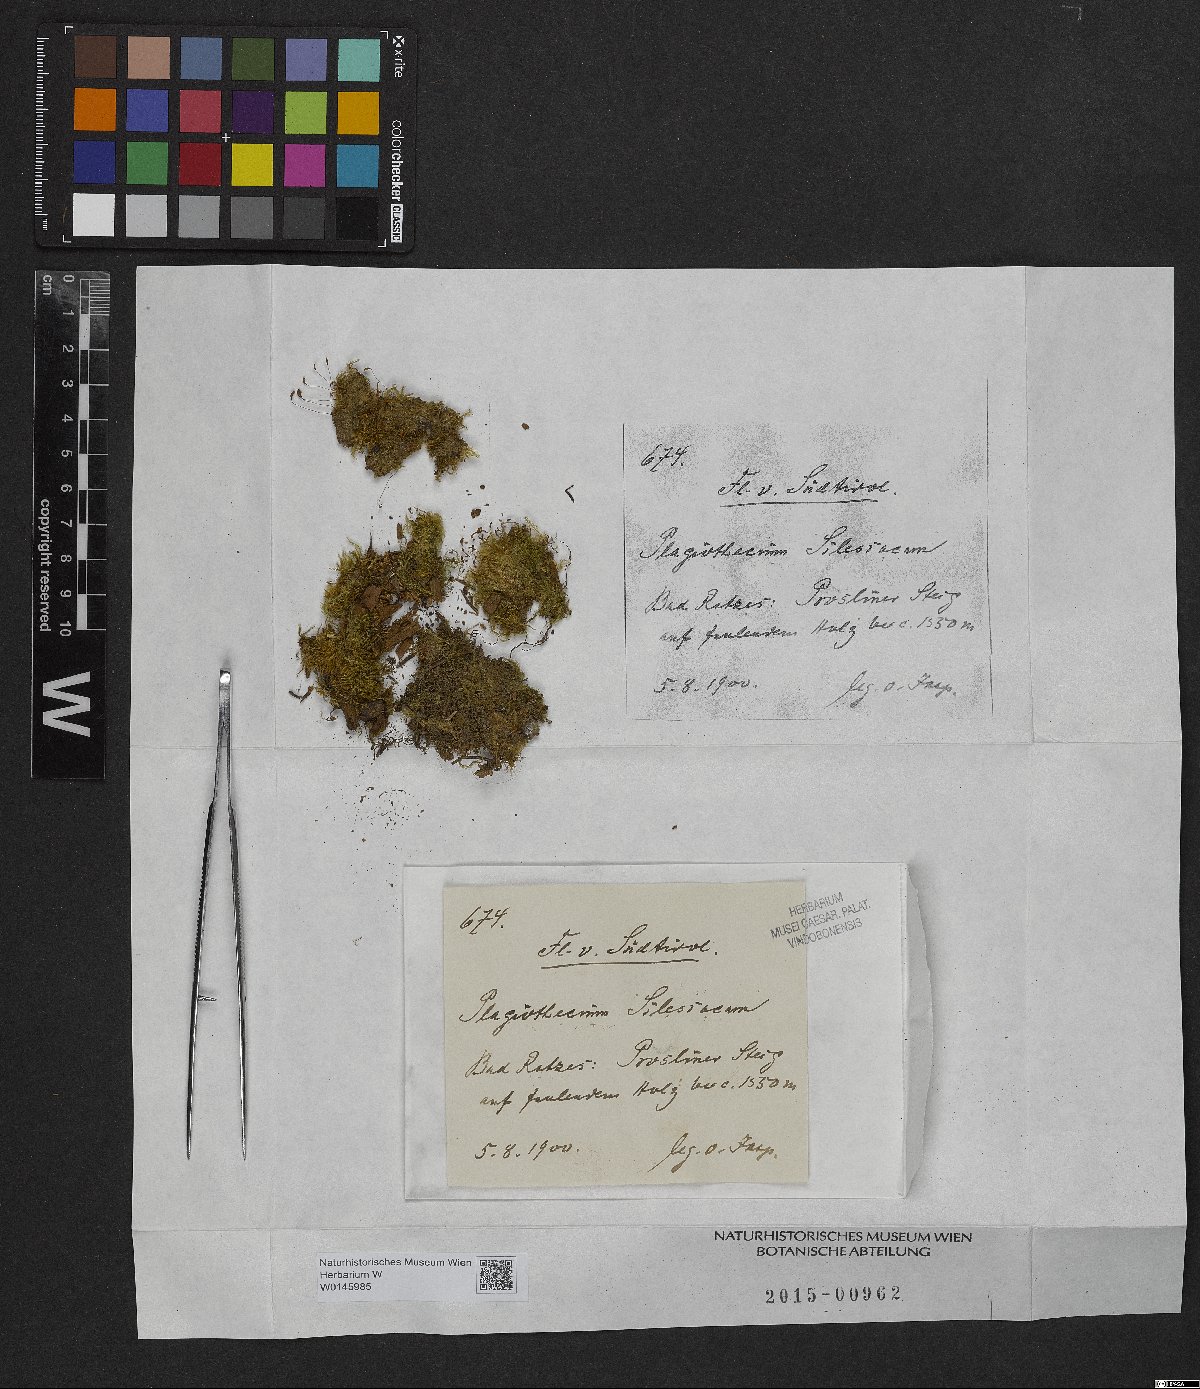 x-rite
colorchecker CLASSIC
mm
cm
0 1 2 3 4 5 6 7 8 9 10
copyright reserved
W
674.
Fl. v. Südtirol.
Plagiothecium Silesiacum
Bad Ratzes: Prosliner Steig
auf faulendem Holz bei c. 1350 m
5.8.1900. leg.
674.
Fl. v. Südtirol.
Plagiothecium Silesiacum
Bad Ratzes: Prosliner Steig
auf faulendem Holz bei c. 1350 m
5.8.1900. leg.
HERBARIUM
MUSEI CAESAR. PALAT.
VINDOBONENSIS
NATURHISTORISCHES MUSEUM WIEN
BOTANISCHE ABTEILUNG
2015-00962
Naturhistorisches Museum Wien
Herbarium W
W0145985